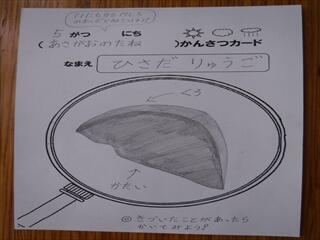 5 がつ　にち
(あさがおのたね)かんさつカード
なまえ ひさだ りゅうご
くろ
かたい
◎きづいたことがあったら
かいてみよう!